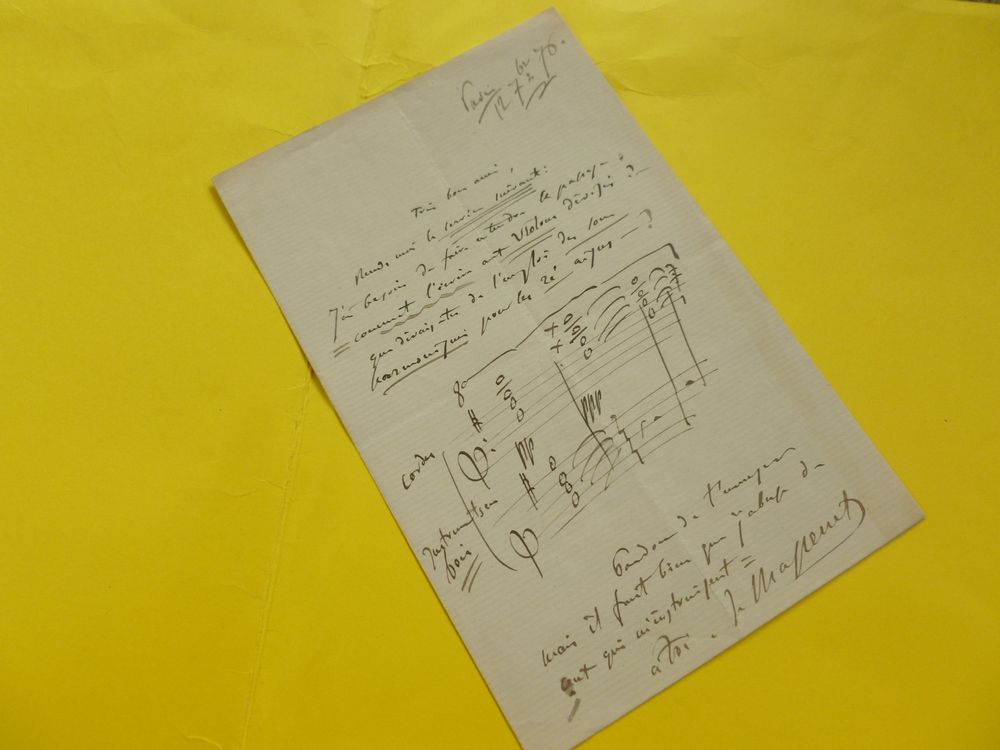 Paris
12 7bre 76.
Très bon ami,
Rends moi le service suivant:
J'ai besoin de faire entendre le passage-ci
comment l'écrire aux violons divisés?
que dirais-tu de l'emploi des sons
harmoniques pour les ré aigus — ?
8a
Cordes
pp
ppp
Instruments en
bois
Pardon de t'ennuyer
mais il faut bien que j'abuse de
ceux qui m'instruisent =
à toi. J. Massenet